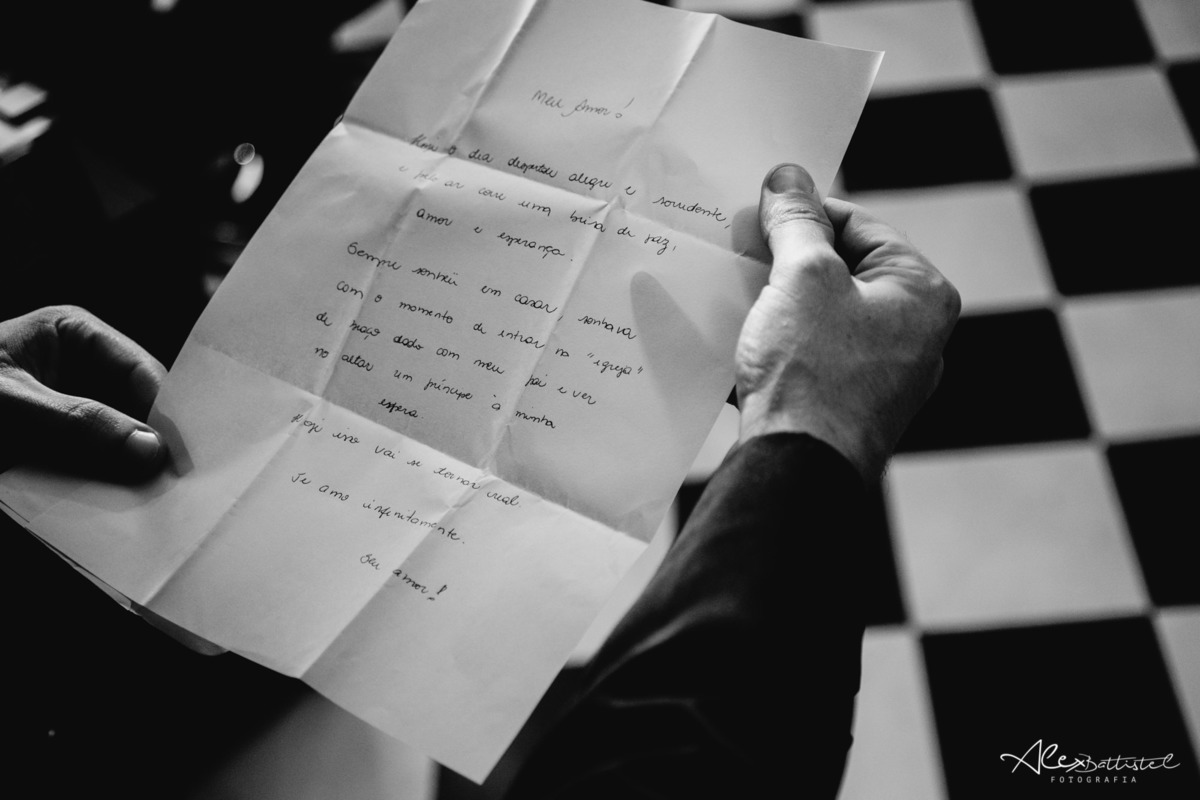 Meu Amor!
Hoje o dia despertou alegre e sorridente,
e pelo ar corre uma brisa de paz,
amor e esperança.
Sempre sonhei em casar, sonhava
com o momento de entrar na "igreja"
de braço dado com meu pai e ver
no altar um príncipe à minha
espera.
Hoje isso vai se tornar real.
Te amo infinitamente.
Seu amor!
Alex Battistel
FOTOGRAFIA